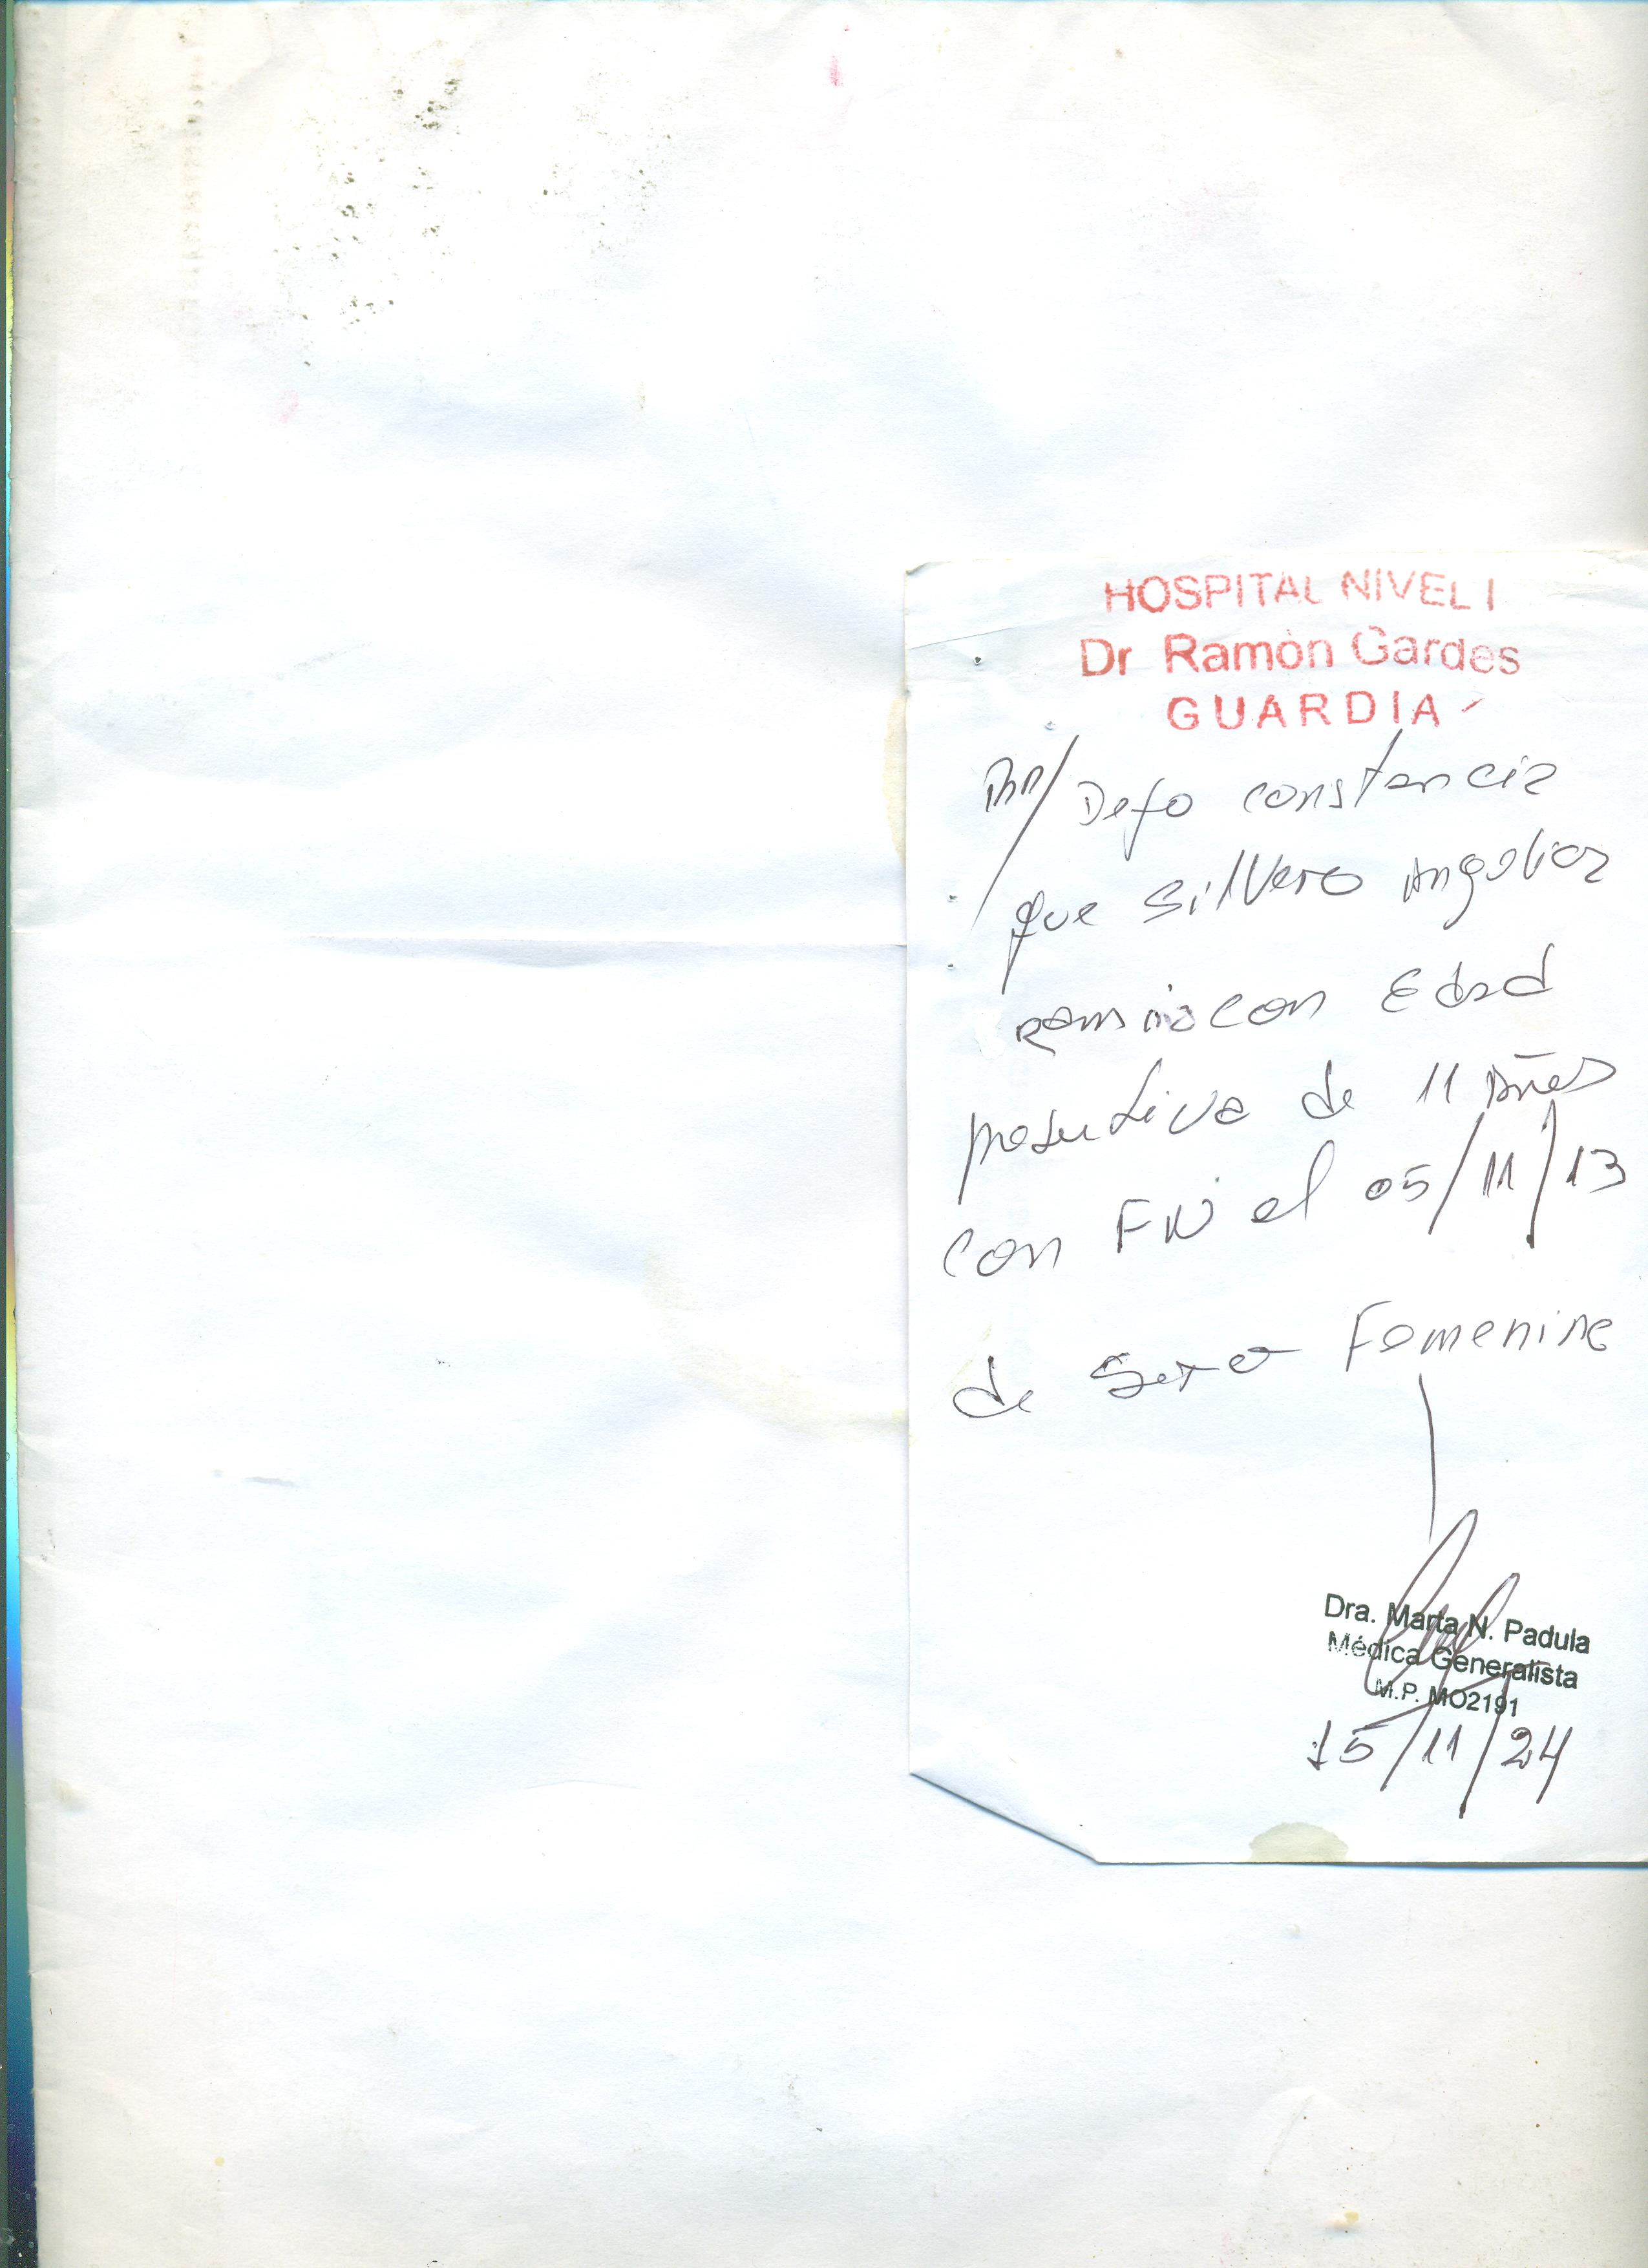 HOSPITAL NIVEL I
Dr Ramòn Gardes
GUARDIA
Dejo constancia
que Silvero
con Edad
de 11 Años
con FN el 05/11/13
de Sexo Femenine
Dra. Marta N. Padula
Médica Generalista
M.P. MO2191
15/11/24